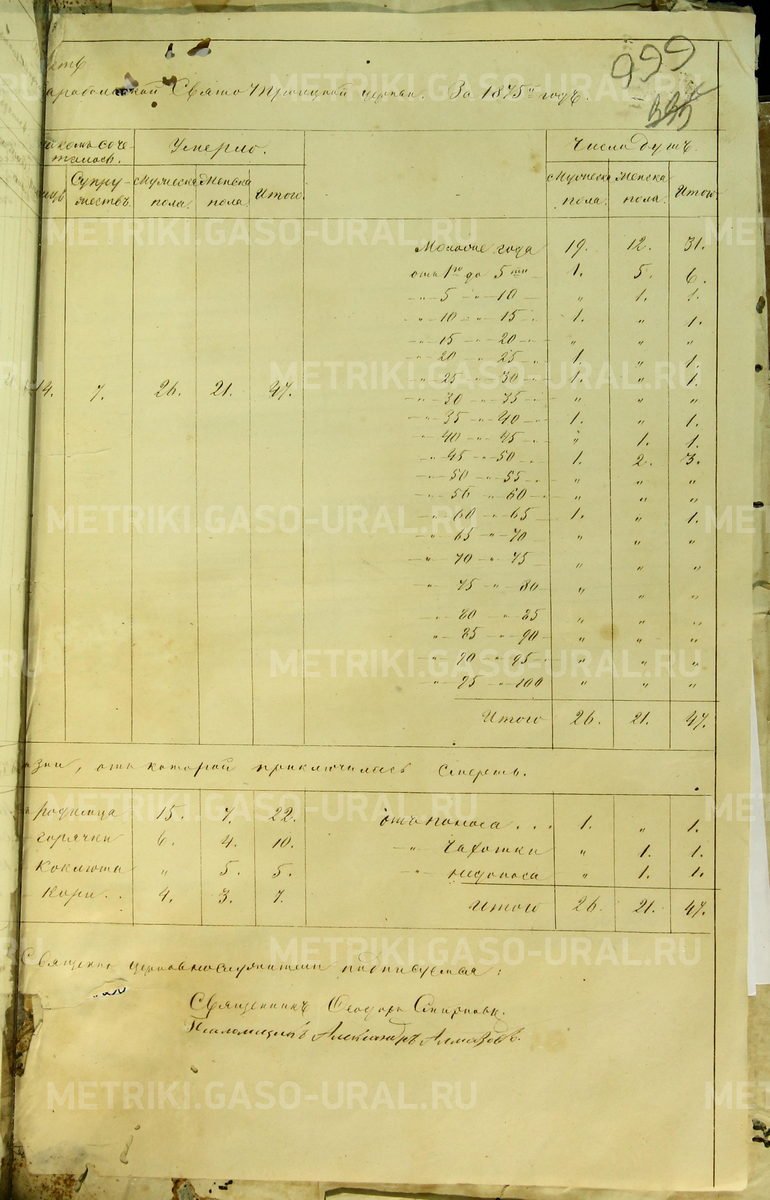 999
Свято Троицкой церкви. За 1875й годъ.
комъ соче-
талось.
Умерло.
Число душъ.
Супру-
жествъ.
Мужеска
пола.
Женска
пола.
Итого.
Мужеска
пола.
Женска
пола.
Итого.
Моложе года 19. 12. 31.
отъ 1го до 5ти 1. 5. 6.
-"- 5 -"- 10 " 1. 1.
-"- 10 -"- 15 1. " 1.
-"- 15 -"- 20 " " "
-"- 20 -"- 25 1. " 1.
14. 7. 26. 21. 47. -"- 25 -"- 30 1. " 1.
-"- 30 -"- 35 " " "
-"- 35 -"- 40 1. " 1.
-"- 40 -"- 45 " 1. 1.
-"- 45 -"- 50 1. 2. 3.
-"- 50 -"- 55 " " "
-"- 56 -"- 60 " " "
-"- 60 -"- 65 1. " 1.
-"- 65 -"- 70 " " "
-"- 70 -"- 75 " " "
-"- 75 -"- 80 " " "
-"- 80 -"- 85 " " "
-"- 85 -"- 90 " " "
-"- 90 -"- 95 " " "
-"- 95 -"- 100 " " "
Итого 26. 21. 47.
отъ которой приключилась смерть.
родимца 15. 7. 22. отъ поноса . . . 1. " 1.
горячки 6. 4. 10. -"- чахотки " 1. 1.
коклюша " 5. 5. -"- недоноса " 1. 1.
кори . . 4. 3. 7. Итого 26. 21. 47.
Священно церковнослужители подписуемся:
Священникъ Ѳеодоръ Смирновъ.
Псаломщикъ Александръ Алмазовъ.
METRIKI.GASO-URAL.RU